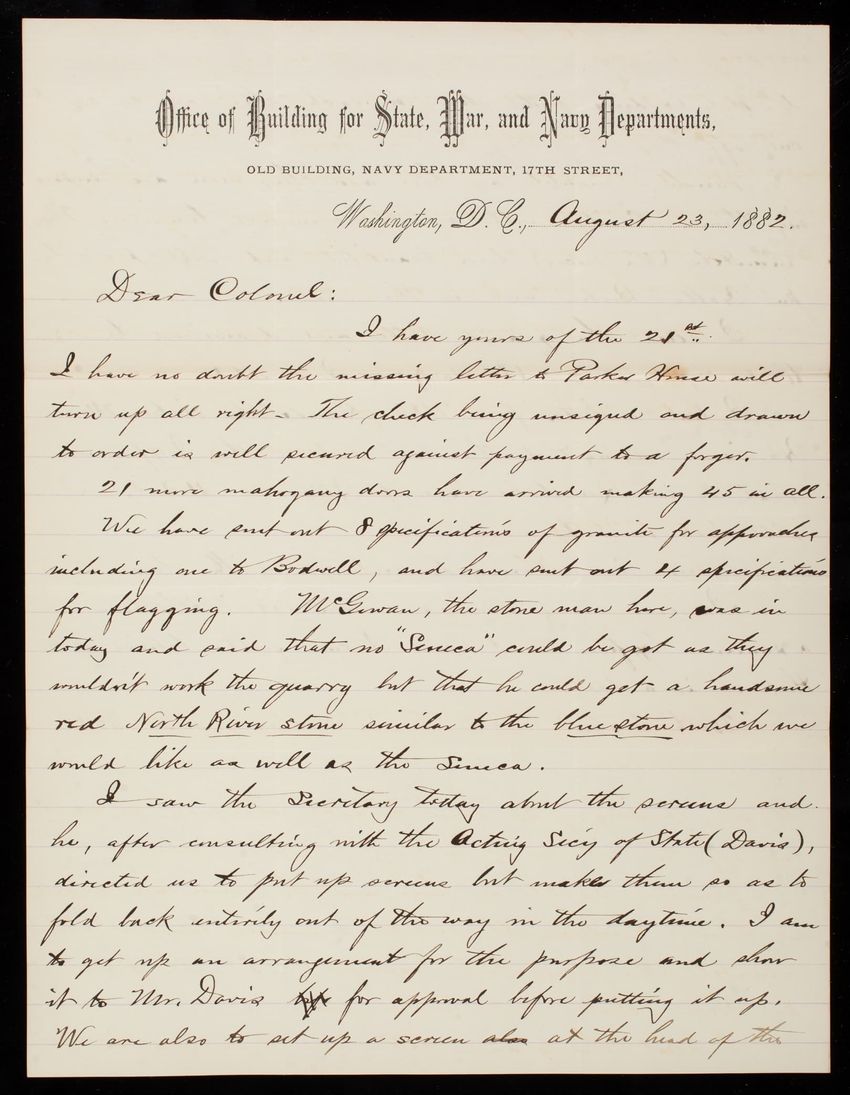 Office of Building for State, War, and Navy Departments,
OLD BUILDING, NAVY DEPARTMENT, 17TH STREET,
Washington, D. C., August 23, 1882.
Dear Colonel:
I have yours of the 21st.
I have no doubt the missing letter to Parker House will
turn up all right - The check being unsigned and drawn
to order is well secured against payment to a forger.
21 more mahogany doors have arrived making 45 in all.
We have sent out 8 specifications of granite for approaches
including one to Bodwell, and have sent out 4 specifications
for flagging. McGowan, the stone man here, was in
today and said that no "Seneca" could be got as they
wouldn't work the quarry but that he could get a handsome
red North River stone similar to the blue stone which we
would like as well as the Seneca.
I saw the Secretary today about the screens and
he, after consulting with the Acting Secy of State (Davis),
directed us to put up screens but make them so as to
fold back entirely out of the way in the daytime. I am
to get up an arrangement for the purpose and show
it to Mr. Davis for approval before putting it up.
We are also to set up a screen also at the head of the